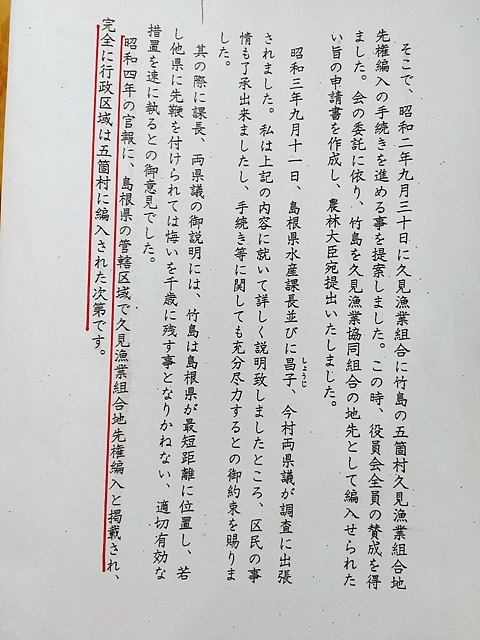 そこで、昭和二年九月三十日に久見漁業組合に竹島の五箇村久見漁業組合地
先権編入の手続きを進める事を提案しました。この時、役員会全員の賛成を得
ました。会の委託に依り、竹島を久見漁業協同組合の地先として編入せられた
い旨の申請書を作成し、農林大臣宛提出いたしました。
昭和三年九月十一日、島根県水産課長並びに昌子、今村両県議が調査に出張
しょうじ
されました。私は上記の内容に就いて詳しく説明致しましたところ、区民の事
情も了承出来ましたし、手続き等に関しても充分尽力するとの御約束を賜りま
した。
其の際に課長、両県議の御説明には、竹島は島根県が最短距離に位置し、若
し他県に先鞭を付けられては悔いを千歳に残す事となりかねない、適切有効な
措置を速に執るとの御意見でした。
昭和四年の官報に、島根県の管轄区域で久見漁業組合地先権編入と掲載され、
完全に行政区域は五箇村に編入された次第です。